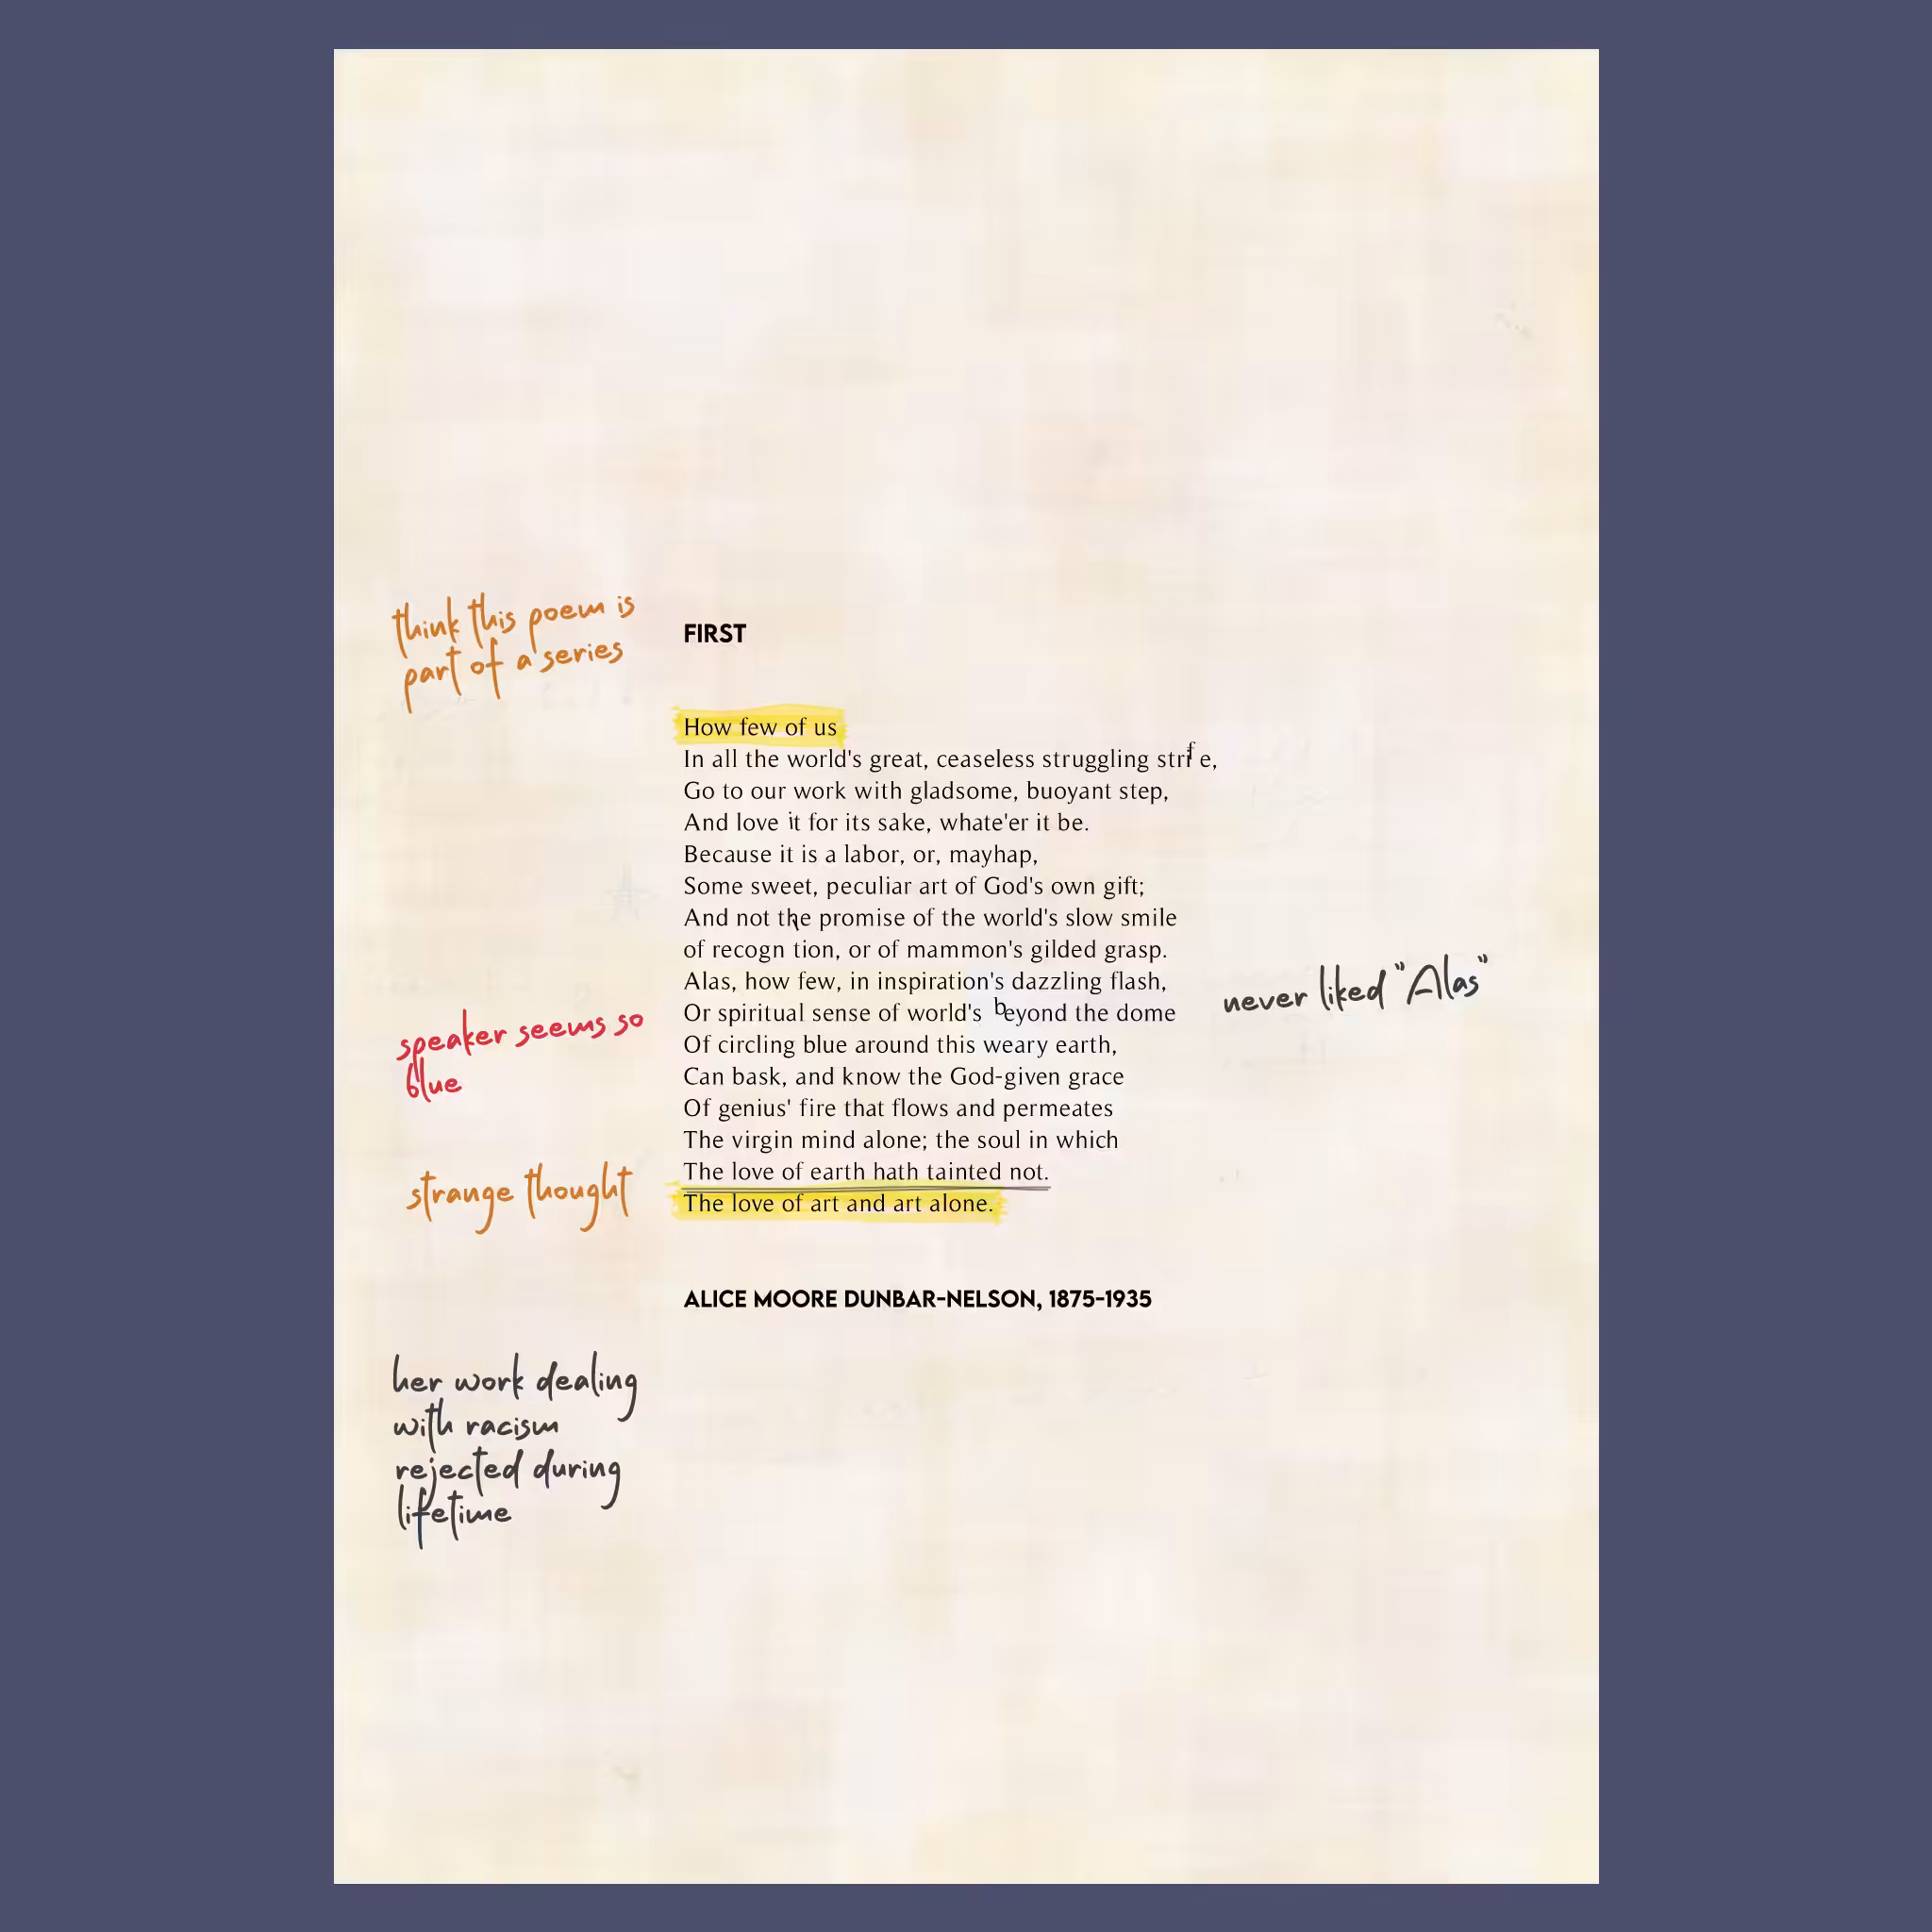 think this poem is
part of a series
FIRST
How few of us
In all the world's great, ceaseless struggling strife,
Go to our work with gladsome, buoyant step,
And love it for its sake, whate'er it be.
Because it is a labor, or, mayhap,
Some sweet, peculiar art of God's own gift;
And not the promise of the world's slow smile
of recogn tion, or of mammon's gilded grasp.
Alas, how few, in inspiration's dazzling flash,
never liked "Alas"
Or spiritual sense of world's beyond the dome
speaker seems so
blue
Of circling blue around this weary earth,
Can bask, and know the God-given grace
Of genius' fire that flows and permeates
The virgin mind alone; the soul in which
The love of earth hath tainted not.
strange thought
The love of art and art alone.
ALICE MOORE DUNBAR-NELSON, 1875-1935
her work dealing
with racism
rejected during
lifetime